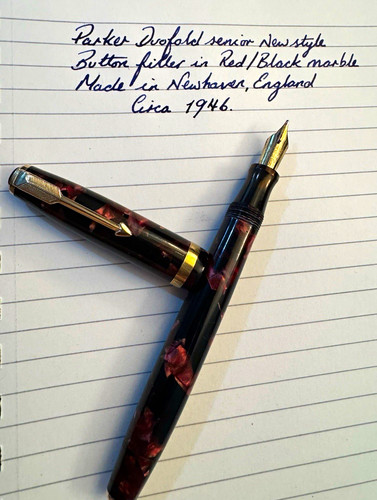 Parker Duofold senior New style
Button filler in Red/Black marble
Made in Newhaven, England
Circa 1946.